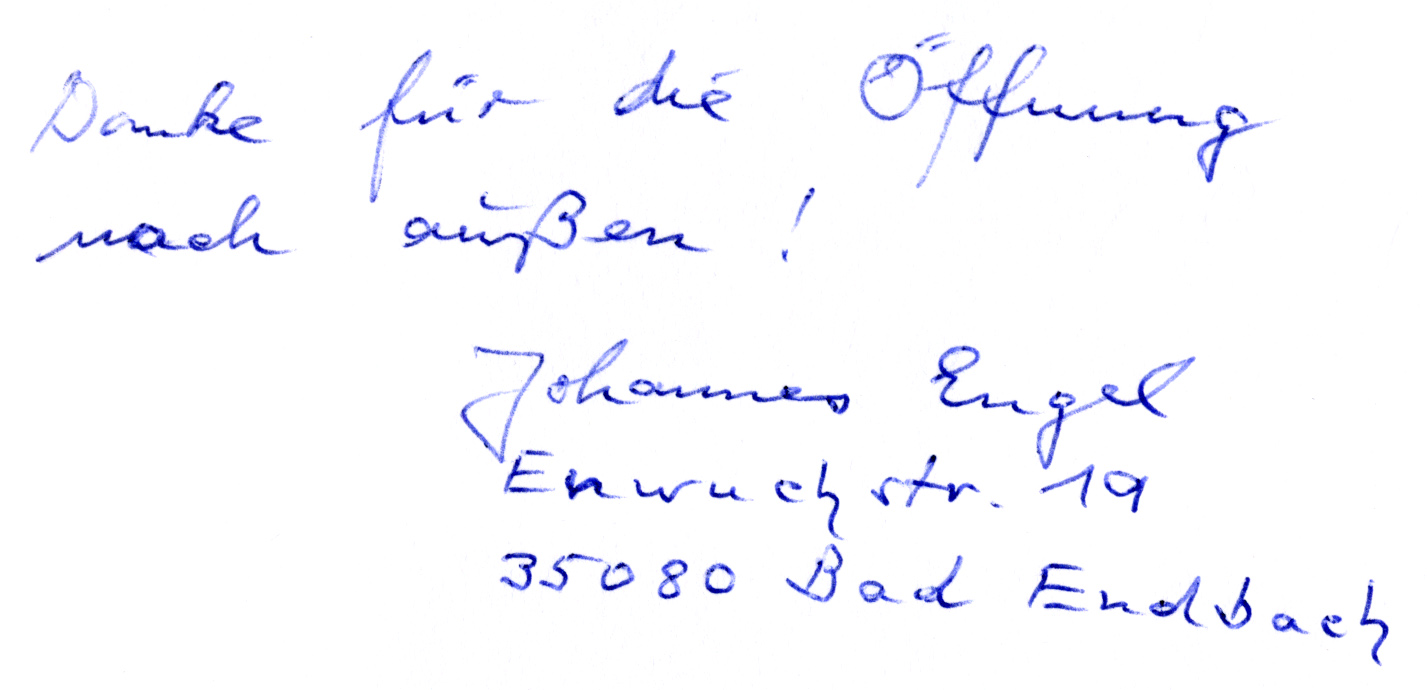 Danke für die Öffnung
nach außen!
Johannes Engel
Enwuchstr. 19
35080 Bad Endbach